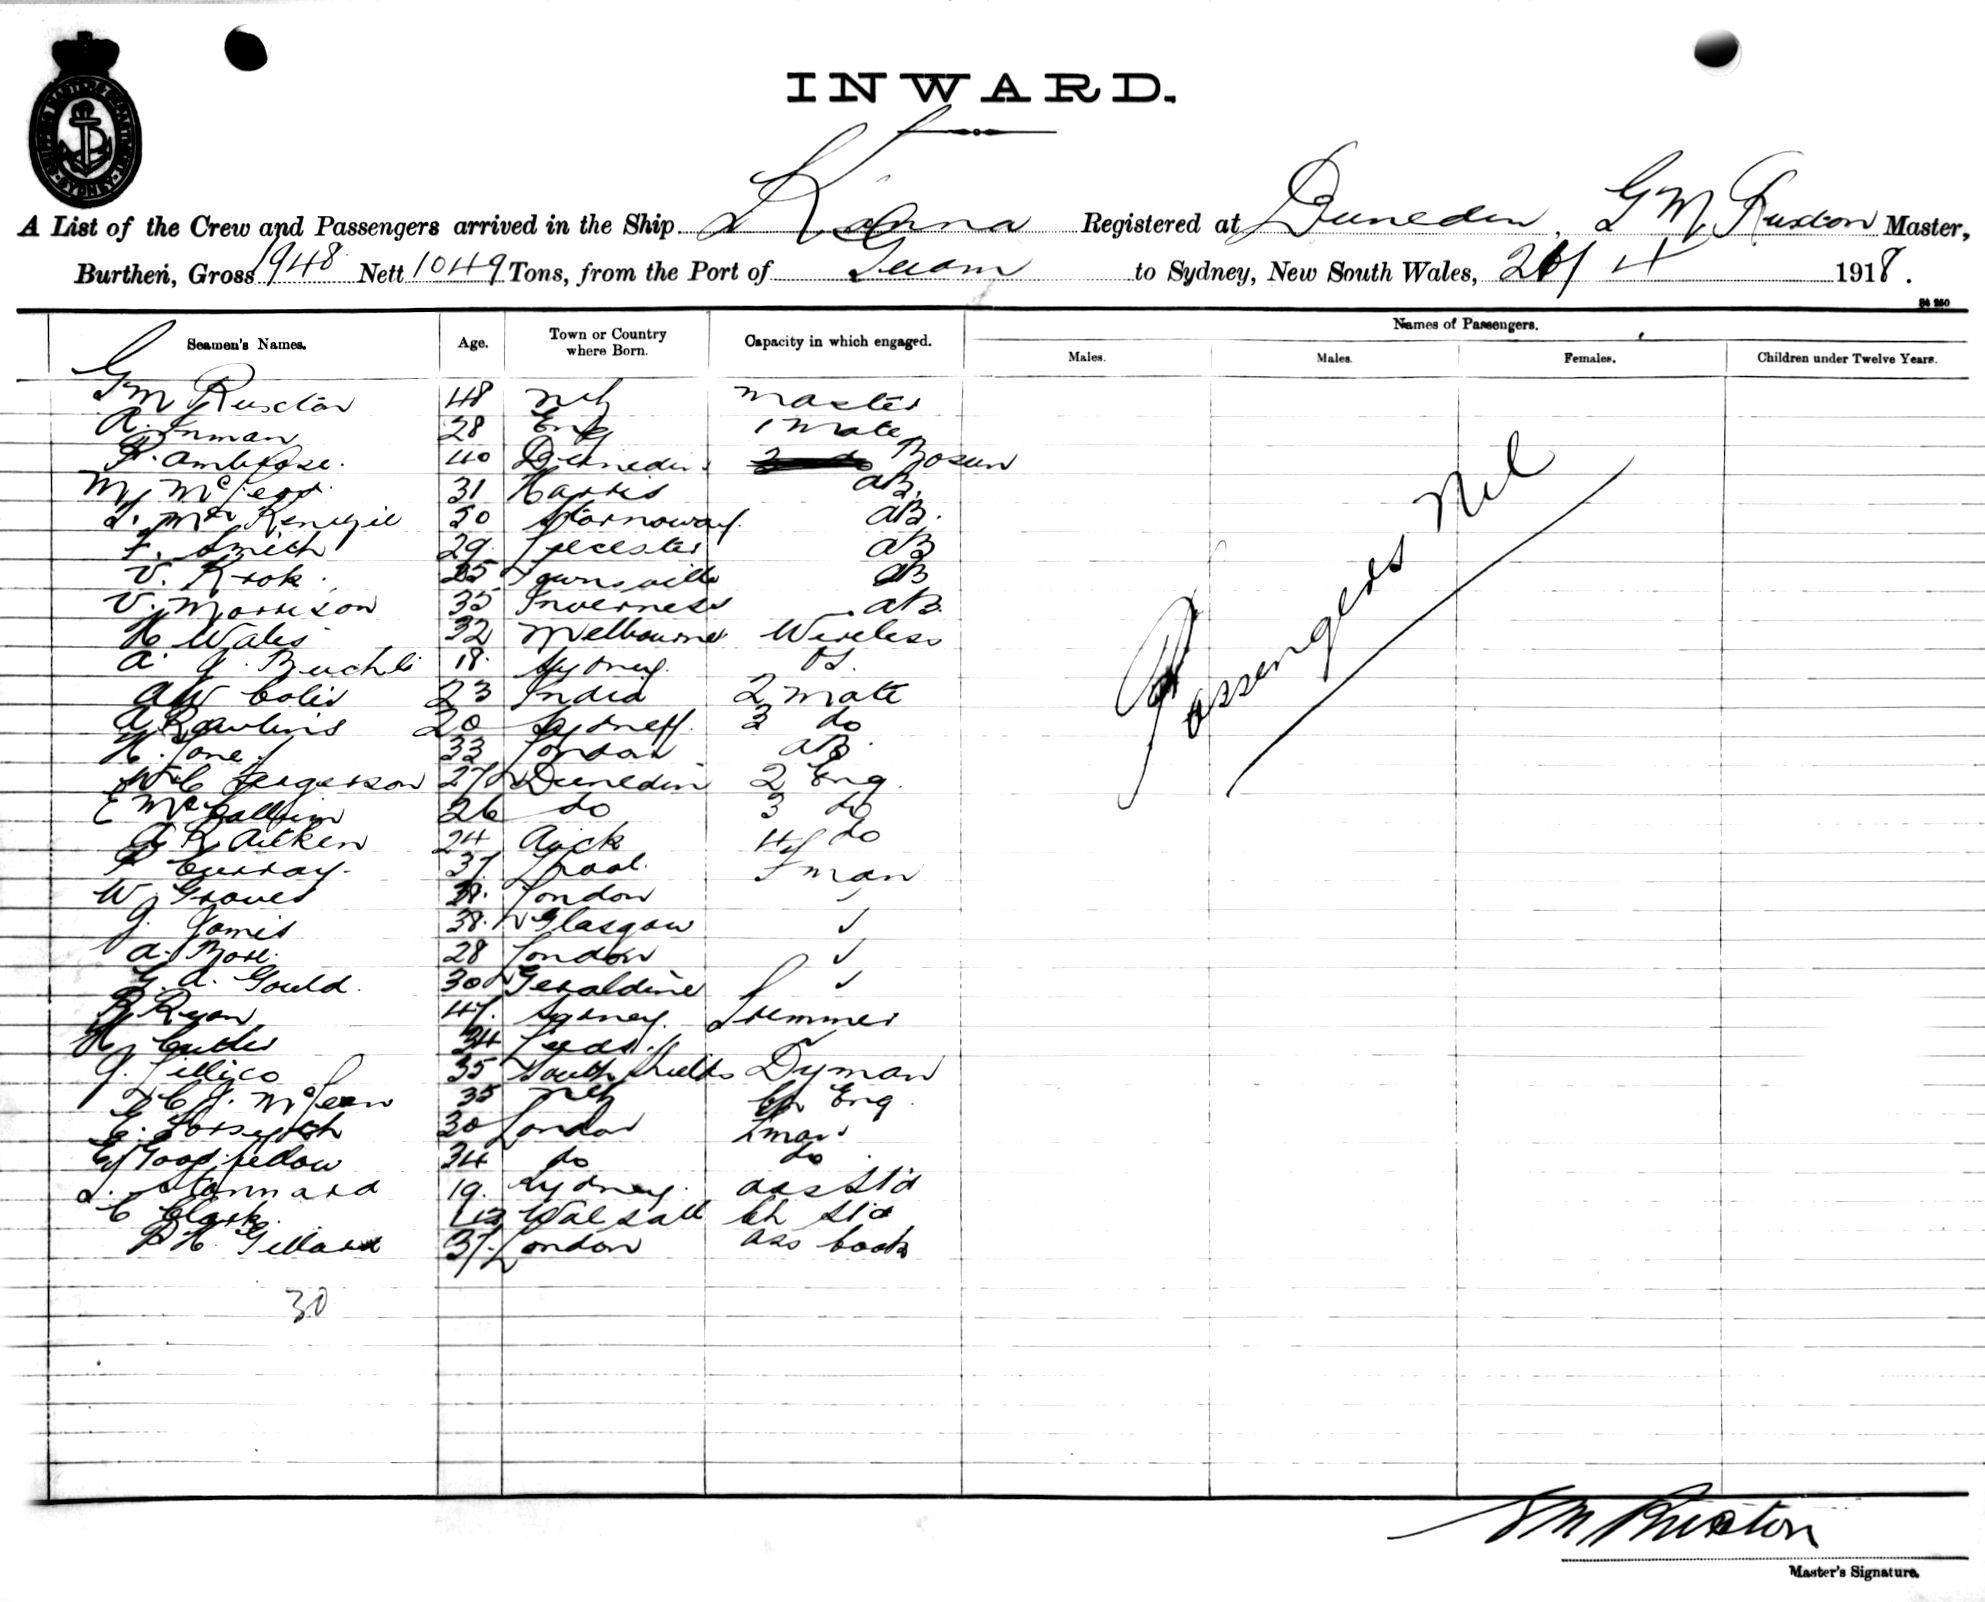 SHIPPING MASTER'S DEPARTMENT SYDNEY
INWARD.
A List of the Crew and Passengers arrived in the Ship Registered at Dunedin, G M Ruxton Master,
Burthen, Gross 1948 Nett 1049 Tons, from the Port of Guam to Sydney, New South Wales, 4 1918.
Seamen's Names. Age. Town or Country where Born. Capacity in which engaged. Names of Passengers.
Males. Males. Females. Children under Twelve Years.
G M Ruxton 48 master
A. Inman 28 Eng 1 mate
P. Ambrose. 40 Dunedin Bosun
M. McLeod 31 Harris AB.
McKenzie 30 Stornoway. AB.
F. Smith 29 Leicester AB
V. Krok. 25 Townsville AB
V. Morrison 35 Inverness AB.
H Wales 32 Melbourne Wireless
A. G. 18. Sydney. OS.
AW Colis 23 India 2 mate
A Rawlins 20 Sydney. 3 do
H. Jones 33 London AB.
W C Fergerson 27 Dunedin 2 Eng
E McCallum 26 do 3 do
A R Aitken 24 Auck 4 do
P Curray. 37 Lpool. Fman
W Graves London
J. James 38. Glasgow
A. 28 London
G. A. Gould. 30 Geraldine
R Ryan 47. Sydney. Trimmer
H. Cutler 34 Leeds.
J. Jillico 35 South Shields Dyman
C J. McLean 35 Ch Eng.
G. Forsyth 30 London Fman
E Goodfellow 34 do do
L. Stannard 19. Sydney. ass Std
C Clark. Walsall Ch Std
P H. Gillard 37. London ass cook
30
Passengers Nil
G M Ruxton
Master's Signature.